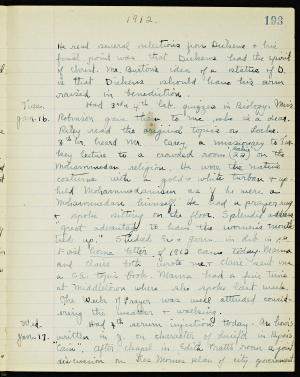 1912. 193
He read several selections from Dickens & his
final point was that Dickens had the spirit
of Christ. Mr. Burton's idea of a statue of D.
is that Dickens should have his arm
raised in benediction.
Tues. Had 3rd & 4th lab. quizzes in Biology. Miss
Jan. 16. Robinson gave them to me, who is a dear.
Riley read the original topics on Locke.
8th hr. heard Mr. Carey, a missionary to
key lecture to a crowded room on the
Mohammedan religion. He wore the native
costume with gold & white turban & up-
held Mohammedanism as if he were a
Mohammedan himself. He had a prayer rug
& spoke sitting on the floor. Splendid address
"great
tied up." Studied Eng. & germ. in lib.
First home letter of 1912 came today. Mama
and Claire both wrote me & Claire sent me
a C.E. topic book. Mama had a fine time
at Middletown where she spoke last week.
The Week of Prayer was well attended consid-
ering the weather & walking.
Wed. Had 4th serum injection today. An hour's
Jan. 17. written in g. on character of in Byron's
"Cain". After chapel in Edith room a joint
discussion on Des Moines plan of city government